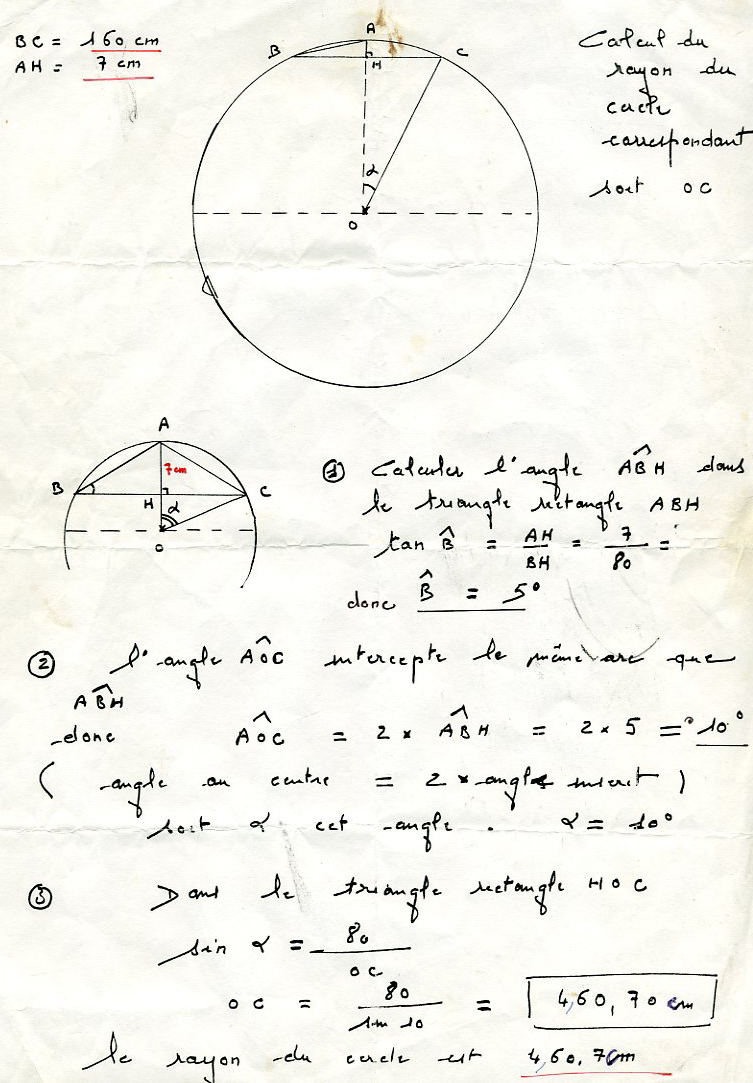 BC = 160 cm
AH = 7 cm
A
B
C
H
α
O
Calcul du
rayon du
cercle
correspondant
soit OC
A
7cm
B
H
α
C
O
① Calculer l'angle ABH dans
le triangle rectangle ABH
tan B = AH/BH = 7/80 =
donc B = 5°
② l'angle AOC intercepte le même arc que
ABH
donc AOC = 2 × ABH = 2 × 5 = 10°
( angle au centre = 2 × angle inscrit )
soit α cet angle . α = 10°
③ Dans le triangle rectangle HOC
sin α = 80/OC
OC = 80/sin 10 = 4,60,70 cm
le rayon du cercle est 4,60.7cm